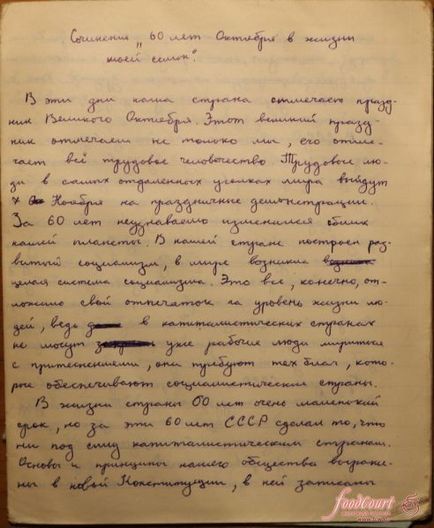 Сочинение „60 лет Октября в жизни
моей семьи".
В эти дни наша страна отмечает празд-
ник Великого Октября. Этот великий празд-
ник отмечаем не только мы, его отме-
чает всё трудовое человечество. Трудовые лю-
ди в самых отдаленных уголках мира выйдут
7 Ноября на праздничные демонстрации.
За 60 лет неузнаваемо изменился облик
нашей планеты. В нашей стране построен раз-
витый социализм, в мире возникла
целая система социализма. Это все, конечно, от-
ложило свой отпечаток на уровень жизни лю-
дей, ведь в капиталистических странах
не могут уже рабочие люди мириться
с притеснениями, они требуют тех благ, кото-
рые обеспечивают социалистические страны.
В жизни страны 60 лет очень маленький
срок, но за эти 60 лет СССР сделал то, что
ни под силу капиталистическим странам.
Основы и принципы нашего общества выраже-
ны в новой Конституции, в ней записаны
foodCourt